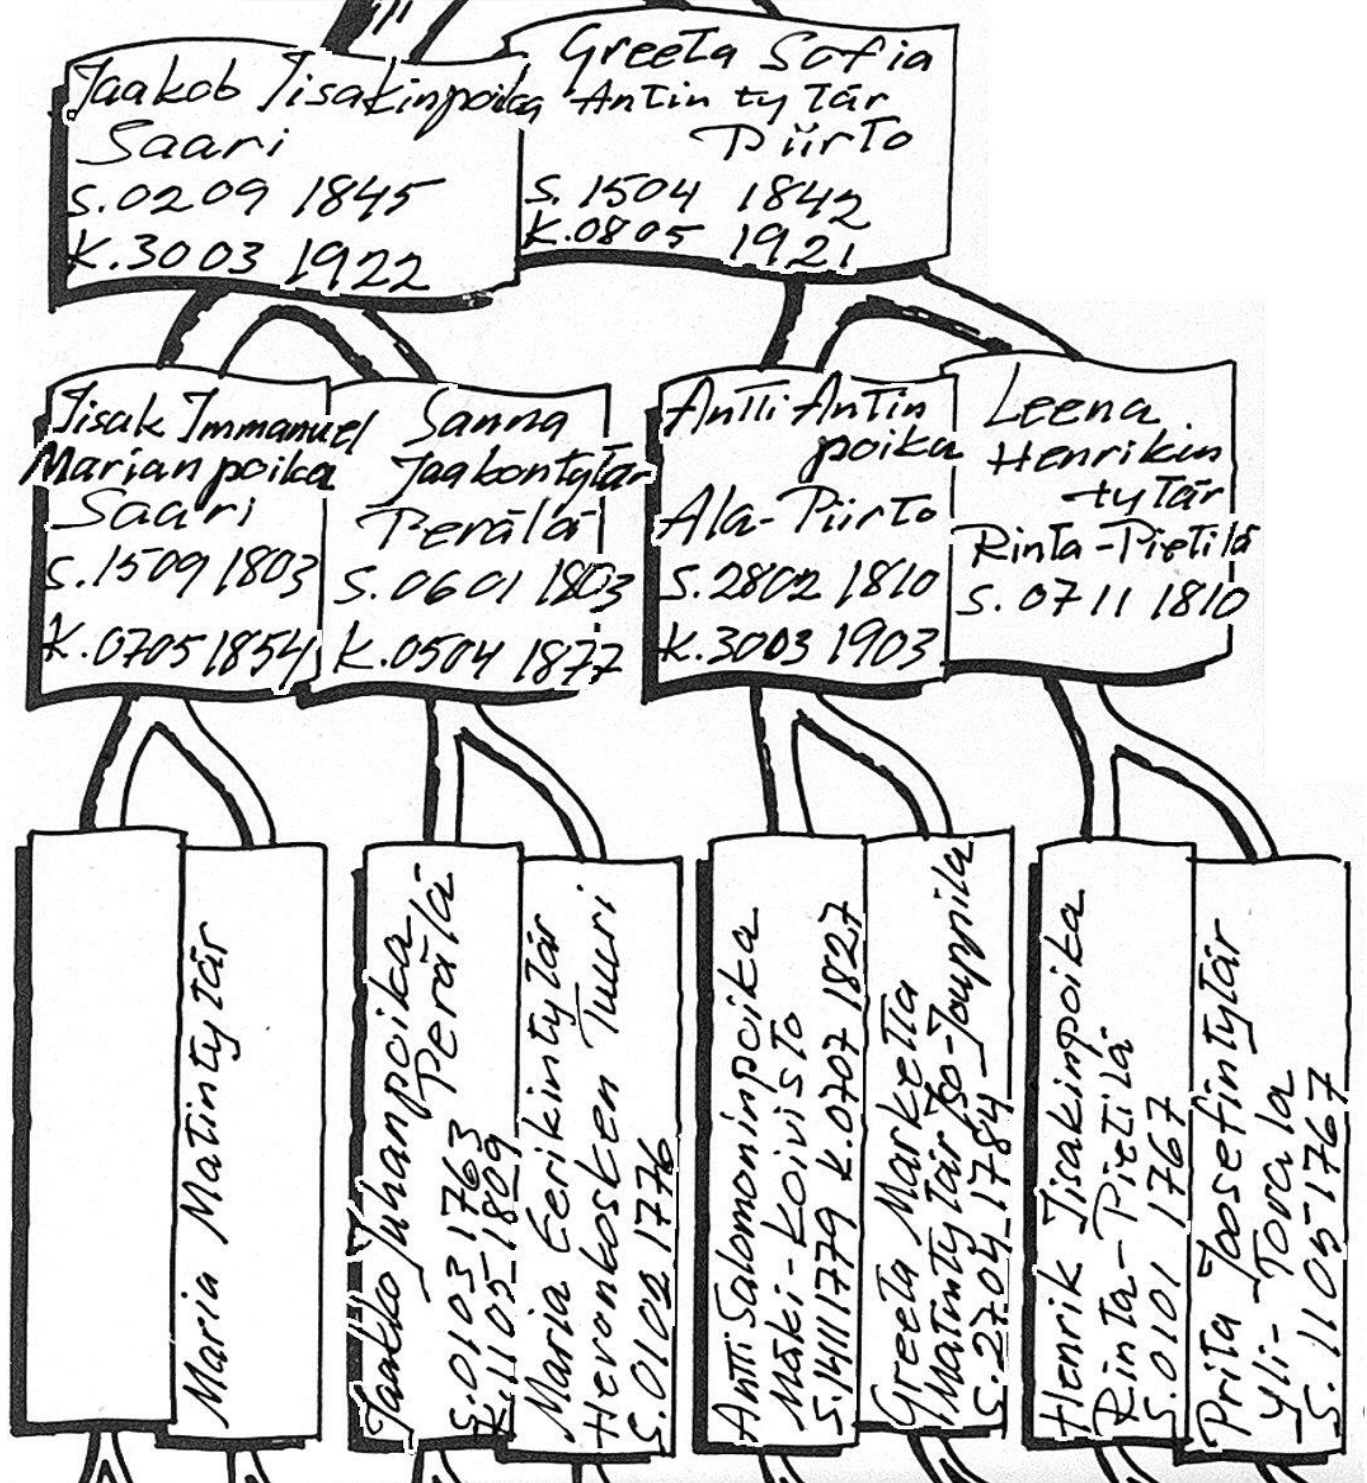 Jaakob Iisakinpoika
Saari
s. 0209 1845
k. 3003 1922
Greeta Sofia
Antin tytär
Piirto
s. 1504 1842
k. 0805 1921
Iisak Immanuel
Marian poika
Saari
s. 1509 1803
k. 0705 1854
Sanna
Jaakontytär
Perälä
s. 0601 1803
k. 0504 1877
Antti Antin
poika
Ala-Piirto
s. 2802 1810
k. 3003 1903
Leena
Henrikin
tytär
Rinta-Pietilä
s. 0711 1810
Maria Matintytär
Jaakko Juhanpoika
Perälä
s. 0103 1763
k. 1105 1809
Maria Eerikintytär
Hevonkosken Tuuri
s. 0102 1776
Antti Salomoninpoika
Mäki-Koivisto
s. 1411 1779 k. 0707 1827
Greeta Marketta
Matintytär Iso-Jouppila
s. 2704 1784
Henrik Iisakinpoika
Rinta-Pietilä
s. 0101 1767
Prita Joosefintytär
Yli-Torala
s. 1105 1767